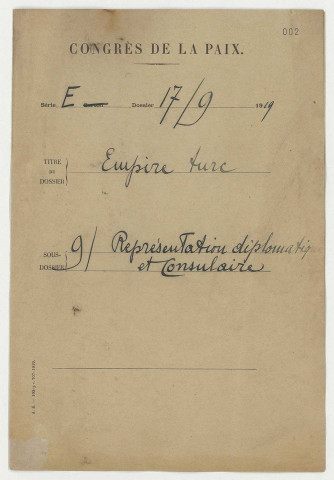 002
CONGRÈS DE LA PAIX.
Série E Dossier 17/9 1919
TITRE DU DOSSIER Empire turc
SOUS-DOSSIER 9/ Représentation diplomatiq
et Consulaire